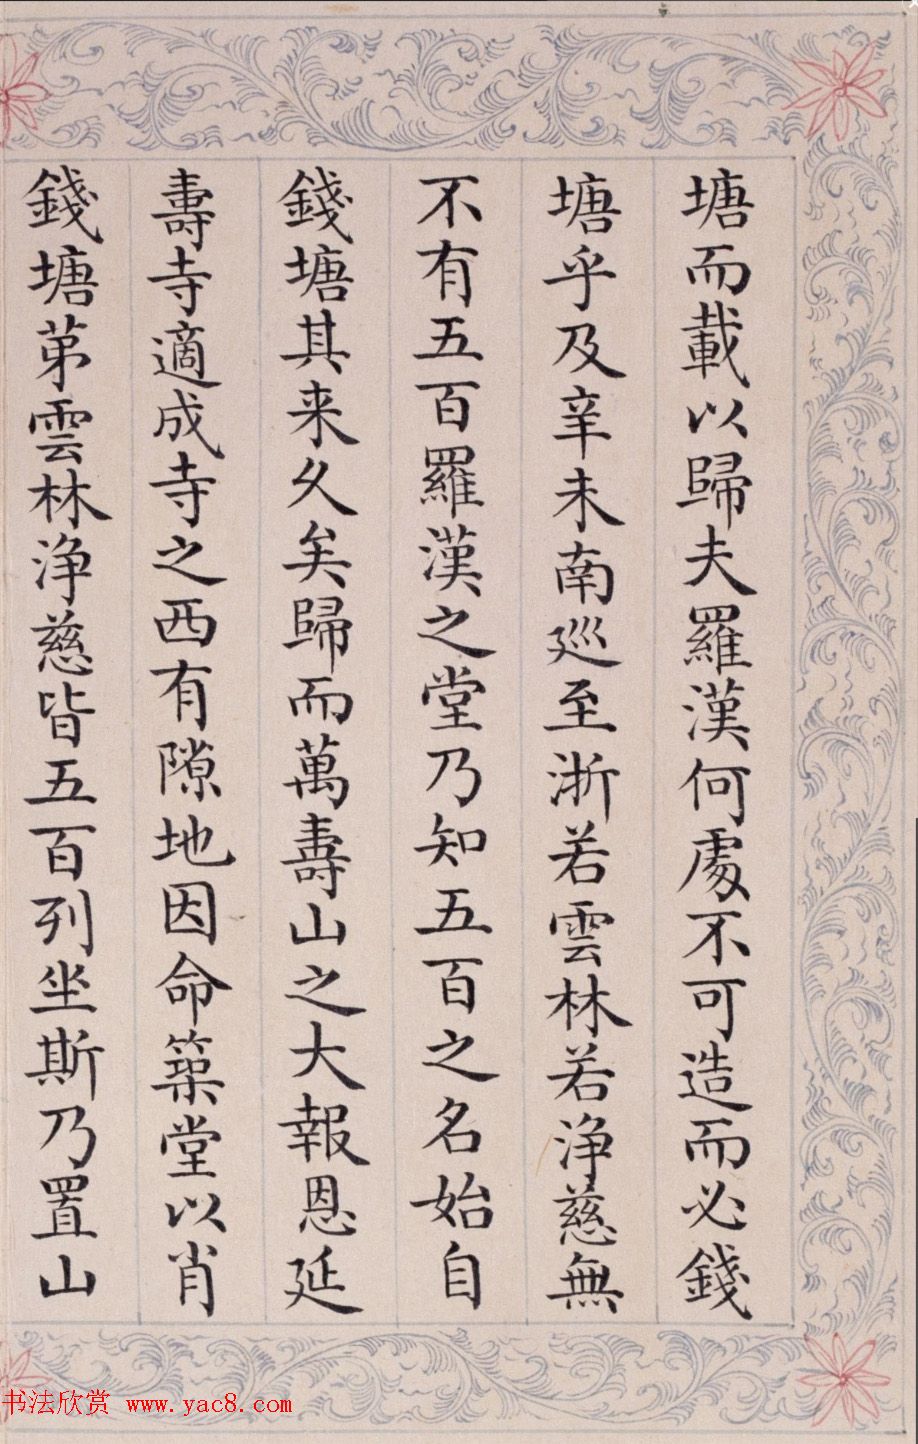 塘而載以歸夫羅漢何處不可造而必錢
塘乎及辛未南廵至浙若雲林若浄慈無
不有五百羅漢之堂乃知五百之名始自
錢塘其来久矣歸而萬壽山之大報恩延
壽寺適成寺之西有隙地因命築堂以肖
錢塘苐雲林浄慈皆五百列坐斯乃置山
书法欣赏 www.yac8.com